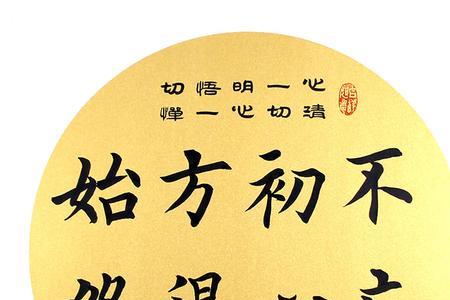 心清
一切
明心
悟一
切禪
不
初
方得
始